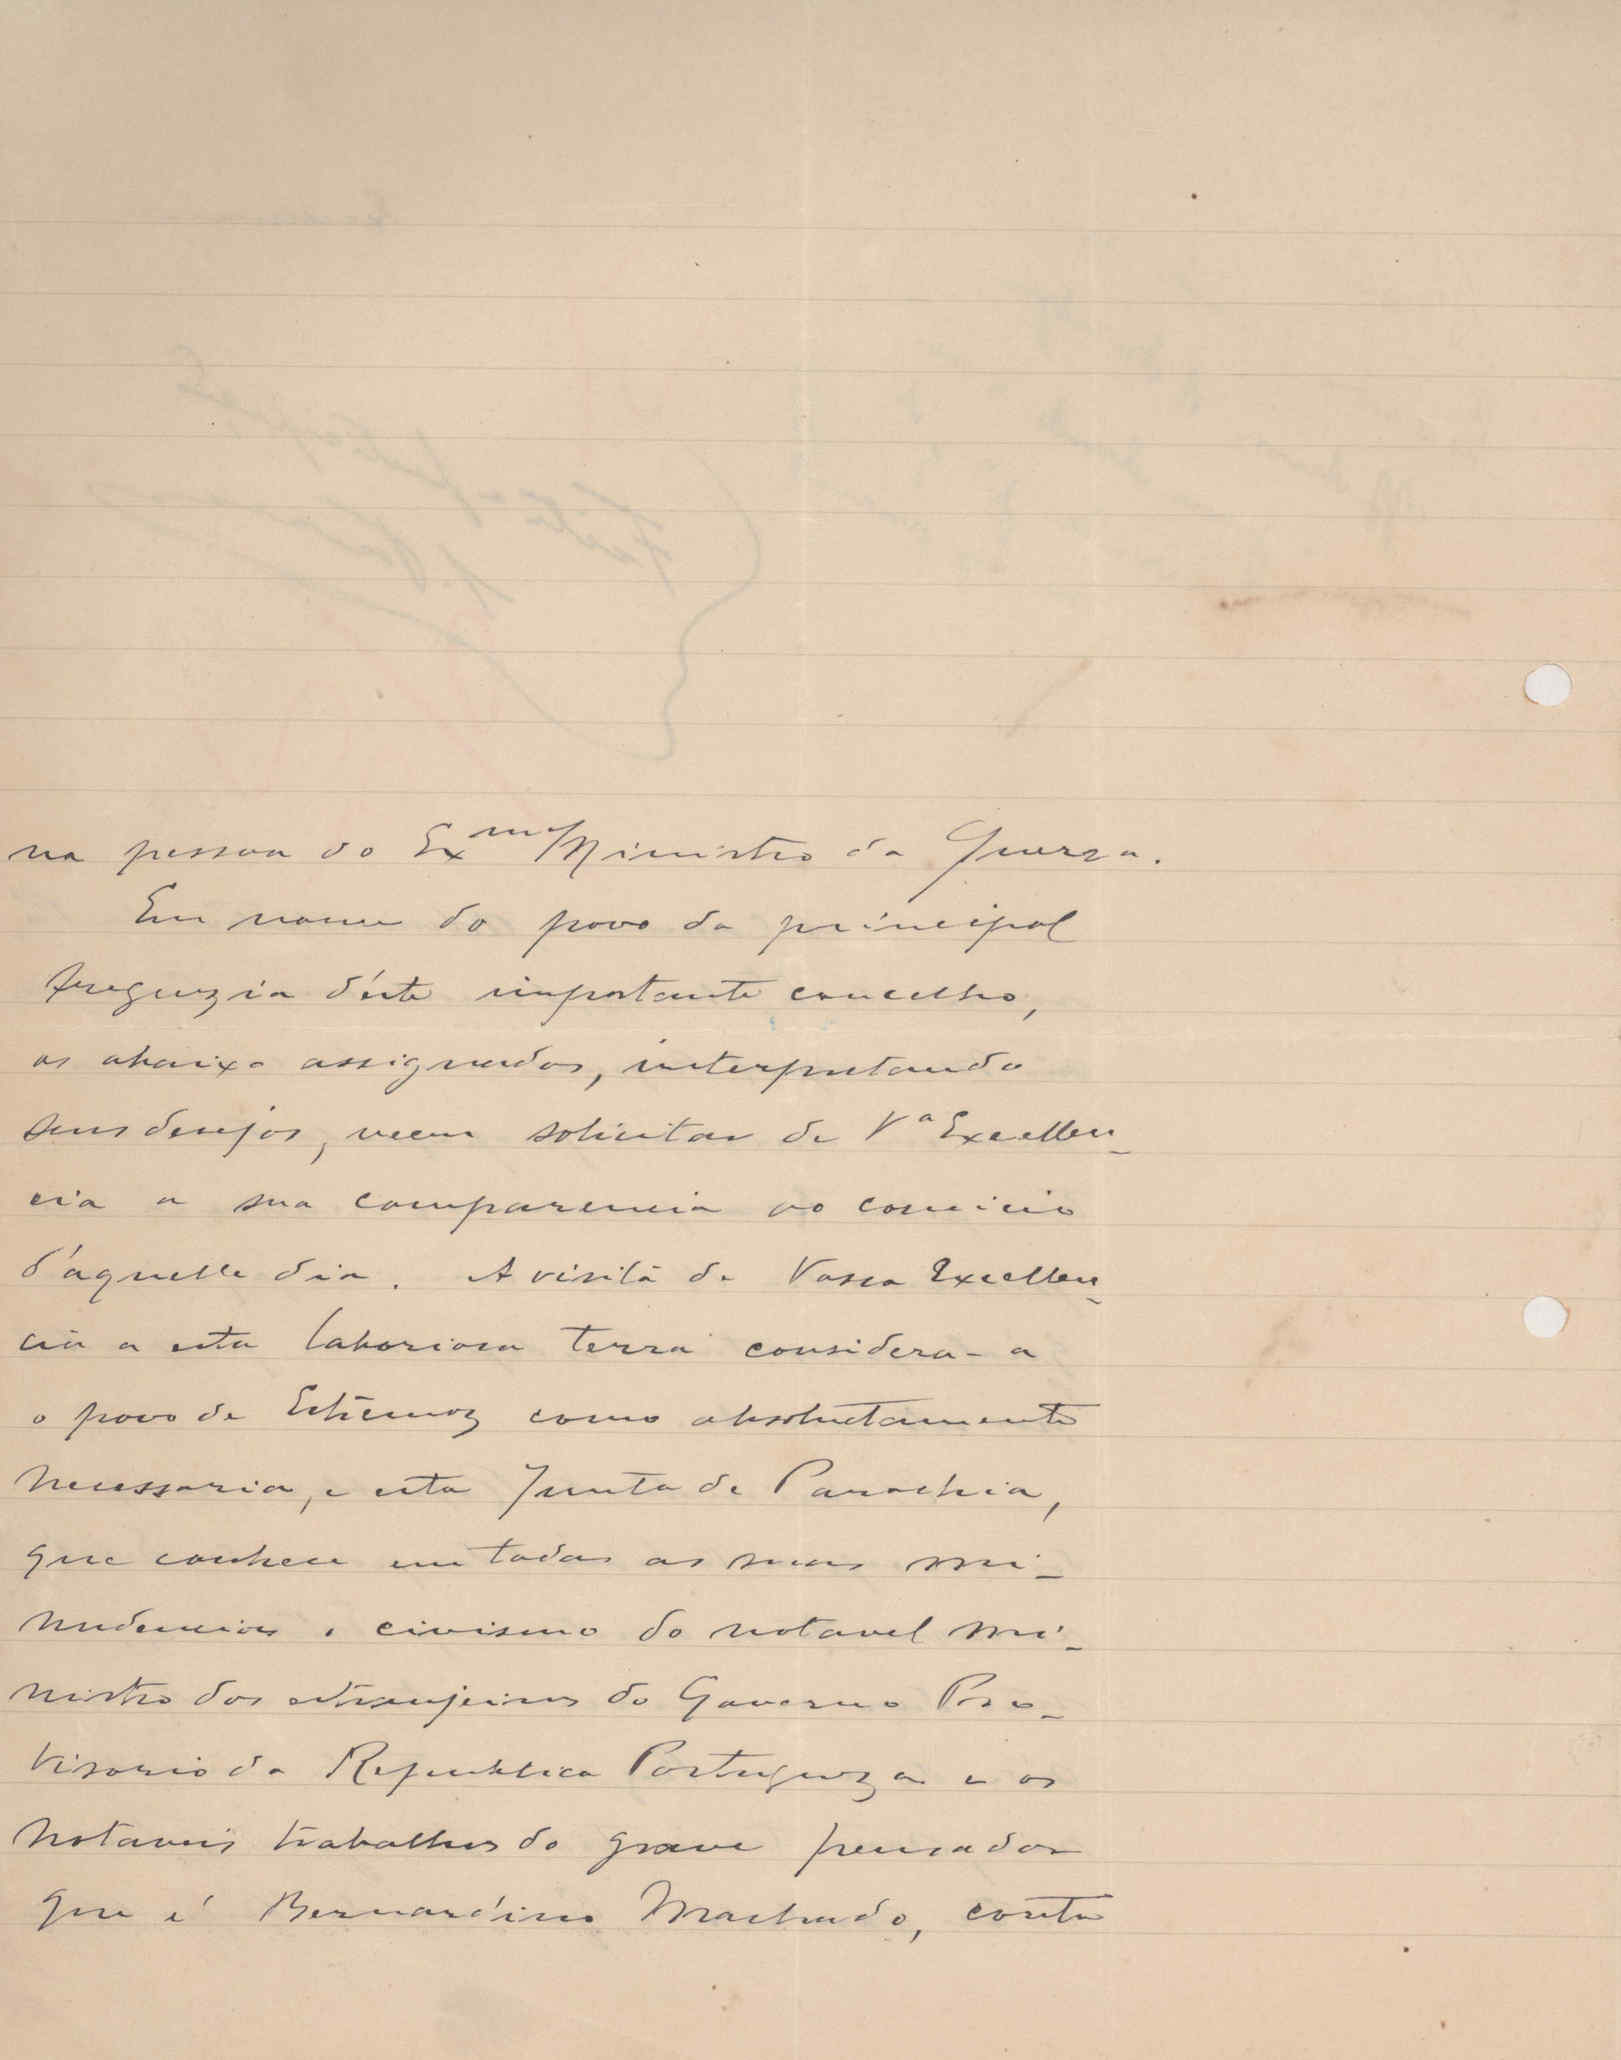 na pessoa do Exmo Ministro da Guerra.
Em nome do povo da principal
freguezia d'éste importante concelho,
os abaixo assignados, interpretando
seus desejos, veem solicitar de Vª Excellen-
cia a sua comparencia ao comicio
d'aquelle dia. A visita de Vossa Excellen-
cia a esta laboriosa terra considera-a
o povo de Estremoz como absolutamente
necessaria, e esta Junta de Parochia,
que conhece em todas as suas mi-
nudencias o civismo do notavel mi-
nistro dos estranjeiros do Governo Pro-
visorio da Republica Portugueza e os
notaveis trabalhos do grave pensador
que é Bernardino Machado, conta